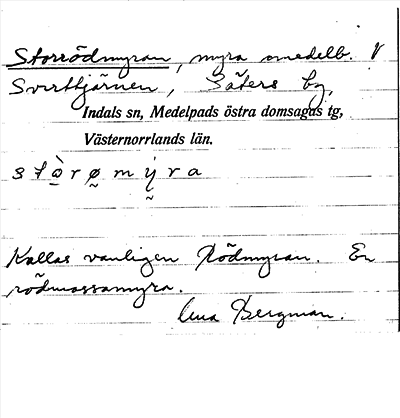 Storrödmyran, myra omedelb. V
Svarttjärnen, Säters by,
Indals sn, Medelpads östra domsagas tg,
Västernorrlands län.
s t ò̱ r ø̰ m ý̰ r a
Kallas vanligen Rödmyran. En
rödmossamyra.
Bergman.